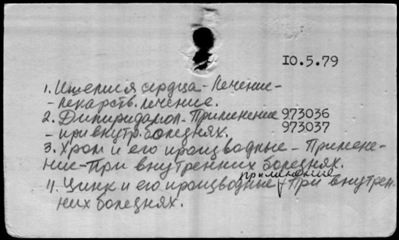 10.5.79
1. Ишемися сердца - Лечение -
- лекарств. лечение.
2. Дипиридамол - Применение 973036
- при внутр. болезнях. 973037
3. Хром и его производные - Примене-
ние - При внутренних болезнях.
применение
4. Цинк и его производные - При внутрен-
них болезнях.